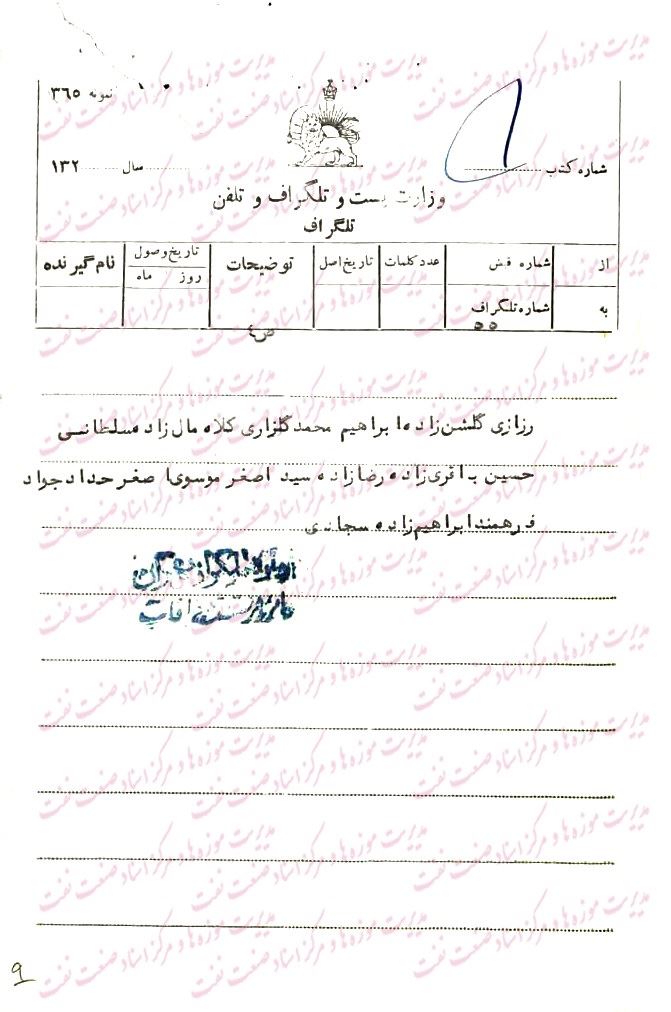 نمونه ۳٦٥
شماره کتاب
سال ۱۳۲
وزارت پست و تلگراف و تلفن
تلگراف
از شماره قبض عدد کلمات تاریخ اصل توضیحات تاریخ وصول نام گیرنده
روز ماه
به شماره تلگراف
٥٥
ص٤
رزازی گلشن زاده ابراهیم محمد گلزاری کلاه مال زاده سلطانی
حسین باقری زاده رضازاده سید اصغر موسوی اصغر حداد جواد
فرهمند ابراهیم زاده سجادی
۹
مدیریت موزه‌ها و مرکز اسناد صنعت نفت